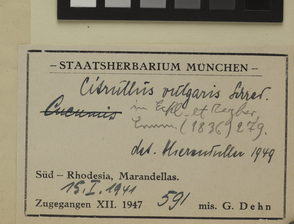 – STAATSHERBARIUM MÜNCHEN –
Citrullus vulgaris Schrad.
Cucumis in Eckl. et Zeyher,
Enum. (1836) 279.
det. Merxmüller 1949
Süd – Rhodesia, Marandellas.
15.I.1941
Zugegangen XII. 1947 591 mis. G. Dehn